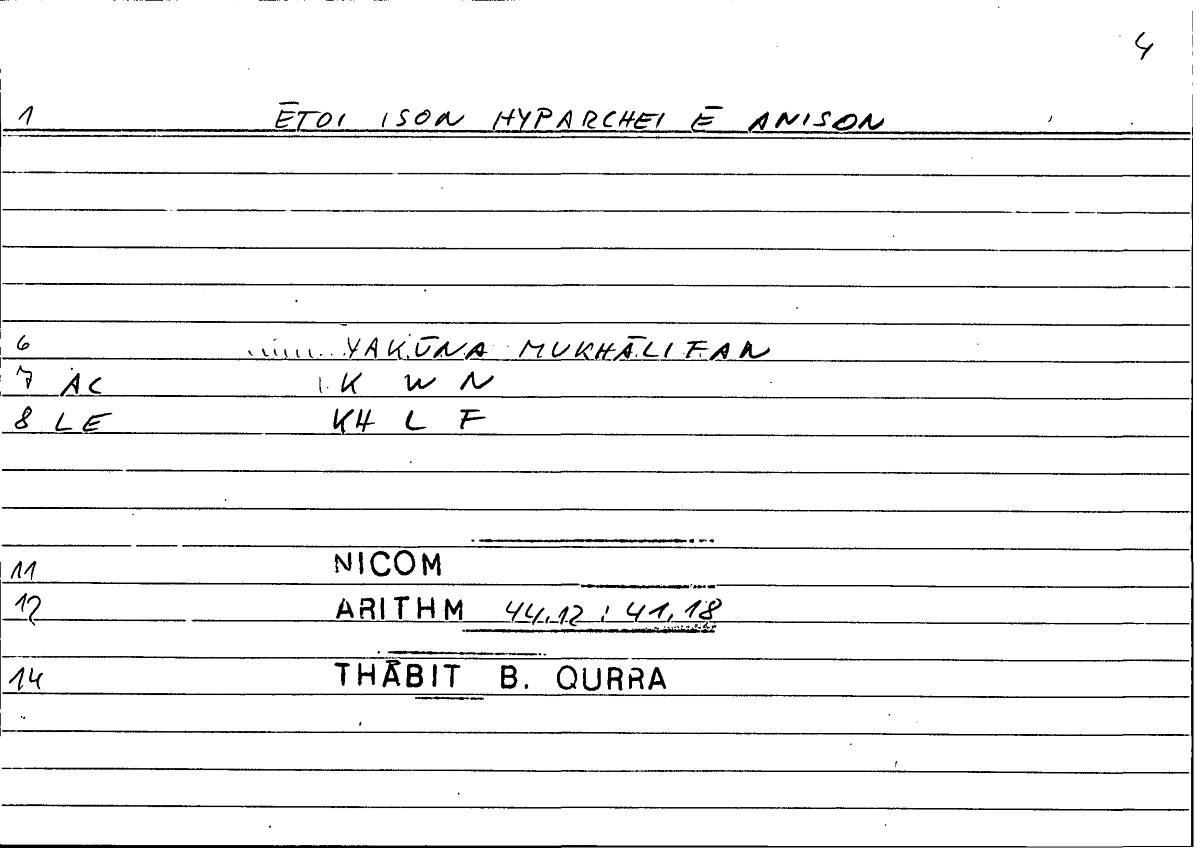 4
1 ĒTOI ISON HYPARCHEI Ē ANISON
6 YAKŪNA MUKHĀLIFAN
7 AC K W N
8 LE KH L F
11 NICOM
12 ARITHM 44,12 : 41,18
14 THĀBIT B. QURRA